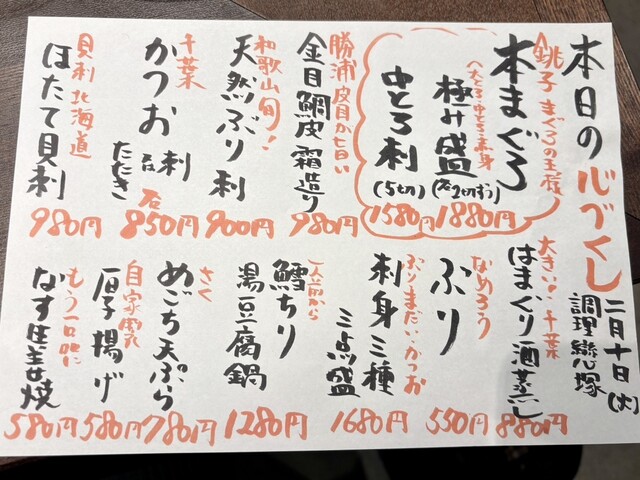 本日の心づくし
二月十日(火)
調理 戀塚
銚子 まぐろの王様
本まぐろ
(大とろ・中とろ・赤身
極み盛(各2切ずつ)
1880円
中とろ刺(5切)
1580円
勝浦 皮目が旨い
金目鯛皮霜造り
980円
和歌山 旬!
天然ぶり刺
900円
千葉
かつお刺
たたき
各850円
貝刺 北海道
ほたて貝刺
980円
大きい! 千葉
はまぐり酒蒸し
880円
なめろう
ぶり
550円
ぶり・まだい・かつお
刺身三種
三点盛
1680円
一人前から
鱈ちり
湯豆腐鍋
1280円
さく
めごち天ぷら
780円
自家製
厚揚げ
580円
もう一品に
なす生姜焼
580円